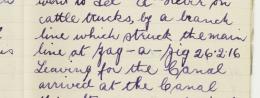 went to Tel a
cattle trucks, by a branch
line which struck the main
line at Zag-a-zig 26-2-16
Leaving for the Canal
arrived at the Canal